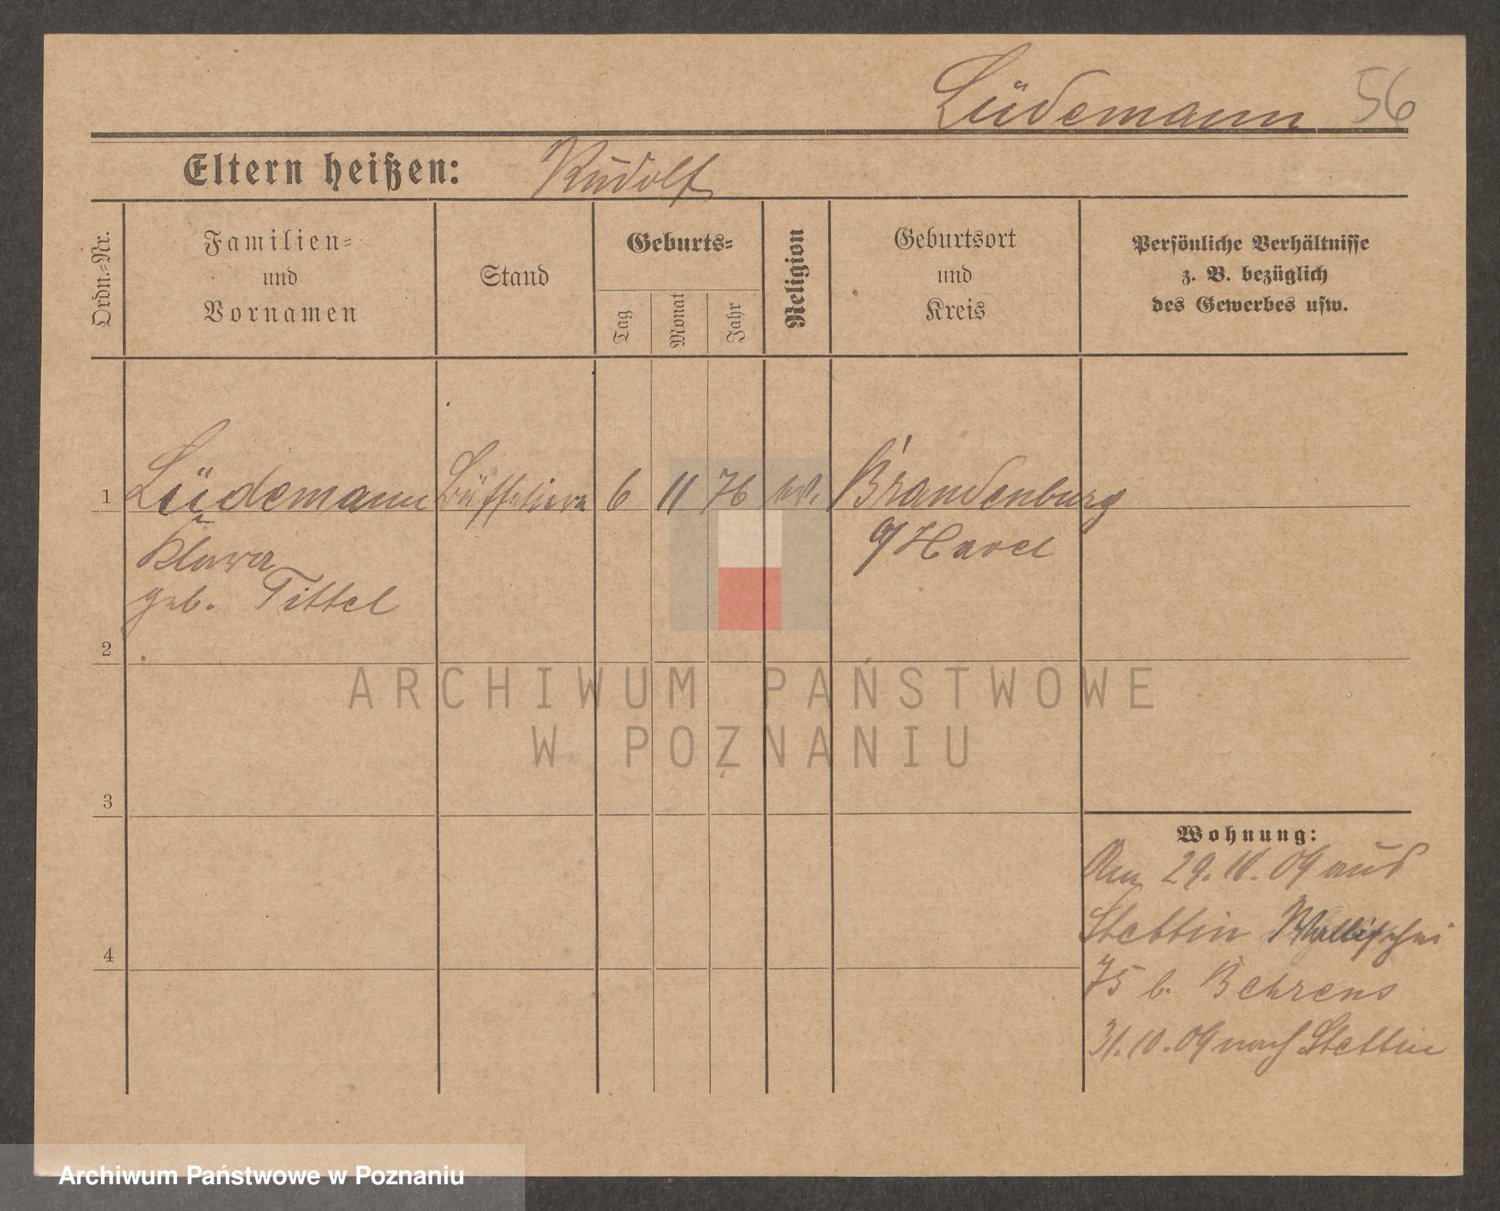 Lüdemann 56
Eltern heißen: Rudolf
Ordn.-Nr.
Familien-
und
Vornamen
Stand
Geburts-
Tag
Monat
Jahr
Religion
Geburtsort
und
Kreis
Persönliche Verhältnisse
z. B. bezüglich
des Gewerbes usw.
1 Lüdemann 6 11 76 ev. Brandenburg
Klara a/Havel
geb. Tittel
2
ARCHIWUM PAŃSTWOWE
W POZNANIU
3
Wohnung:
29.10.09 aus
Stettin Wallischei
4
75 b. Behrens
31.10.09 nach Stettin
Archiwum Państwowe w Poznaniu